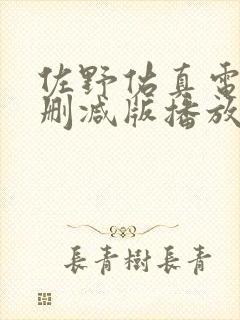 佐野佑真電
删减版播放
長青樹長青